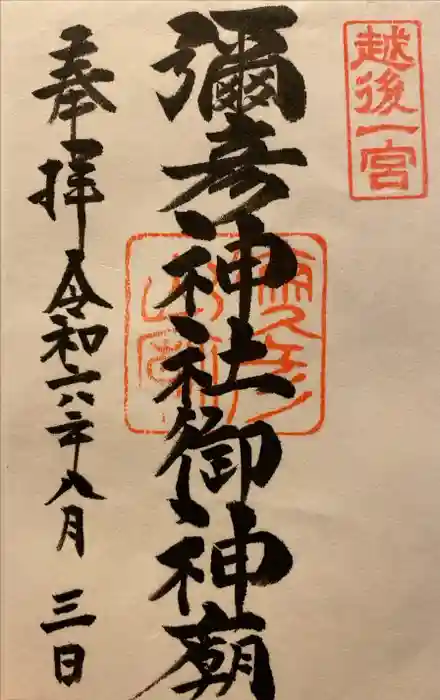 越後一宮
彌彦神社御神廟
奉拝 令和六年八月三日